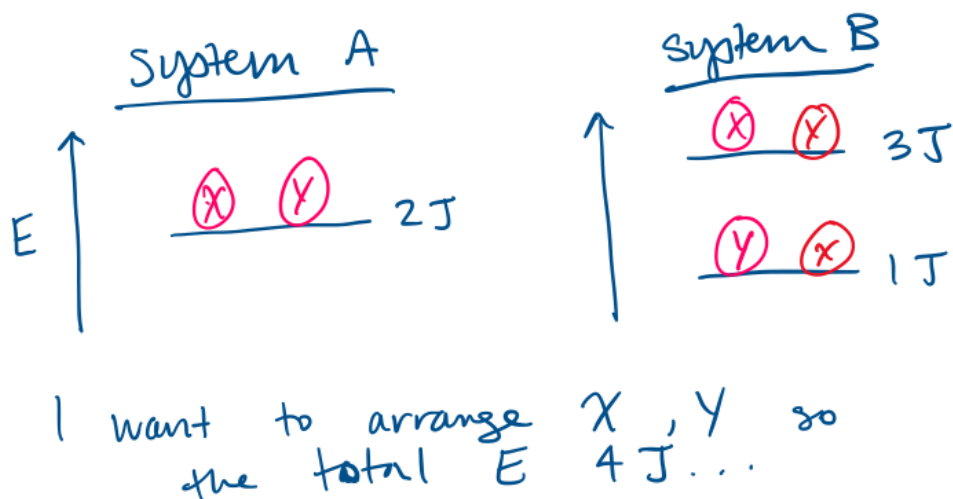 System A
system B
X Y 3J
E
X Y 2J
Y X 1J
I want to arrange X, Y so
the total E 4J...